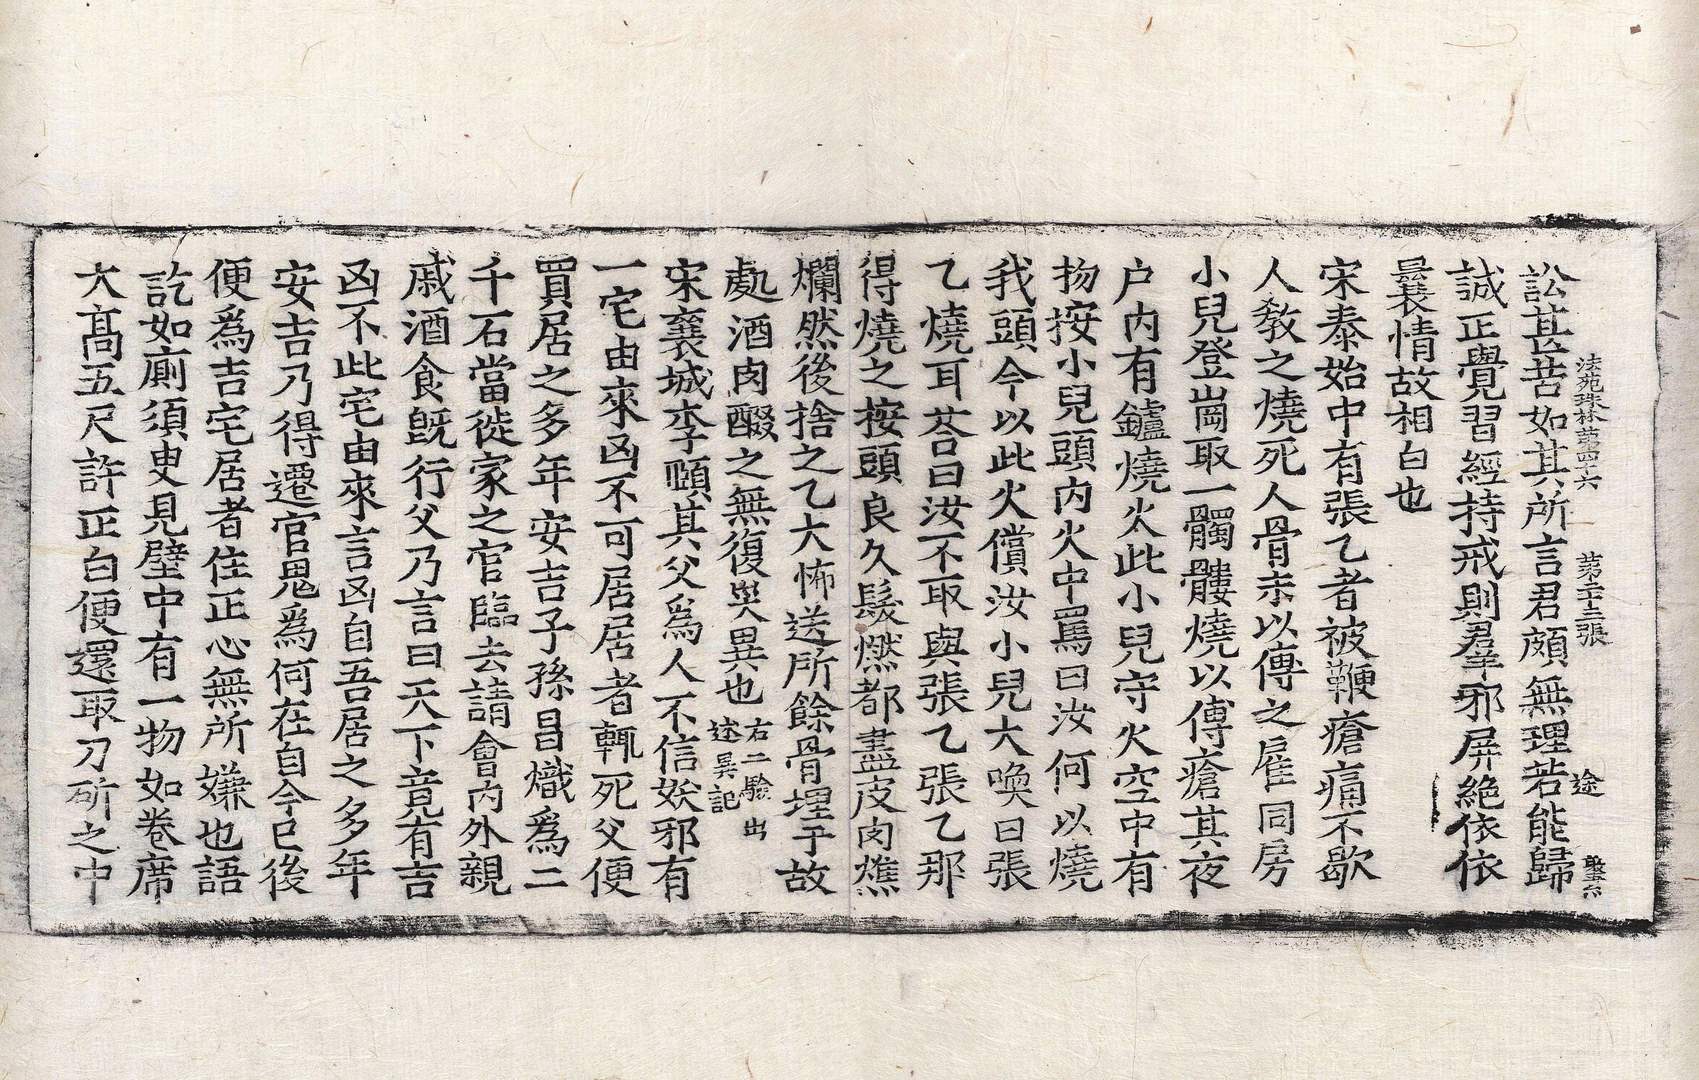 法苑珠林苐四十六 苐二十三張 途
訟甚苦如其所言君頗無理若能歸
誠正覺習經持戒則羣邪屏絶依依
曩情故相白也
宋泰始中有張乙者被鞭瘡痛不歇
人教之燒死人骨末以傅之雇同房
小兒登崗取一髑髏燒以傅瘡其夜
户内有鑪燒火此小兒守火空中有
物按小兒頭内火中罵曰汝何以燒
我頭今以此火償汝小兒大喚曰張
乙燒耳荅曰汝不取與張乙張乙那
得燒之按頭良久髮燃都盡皮肉燋
爛然後捨之乙大怖送所餘骨埋于故
處酒肉醊之無復災異也 右二驗出述異記
宋襄城李頤其父爲人不信妖邪有
一宅由來凶不可居居者輒死父便
買居之多年安吉子孫昌熾爲二
千石當徙家之官臨去請會内外親
戚酒食旣行父乃言曰天下竟有吉
凶不此宅由來言凶自吾居之多年
安吉乃得遷官鬼爲何在自今已後
便爲吉宅居者住正心無所嫌也語
訖如廁須臾見壁中有一物如卷席
大高五尺許正白便還取刀斫之中